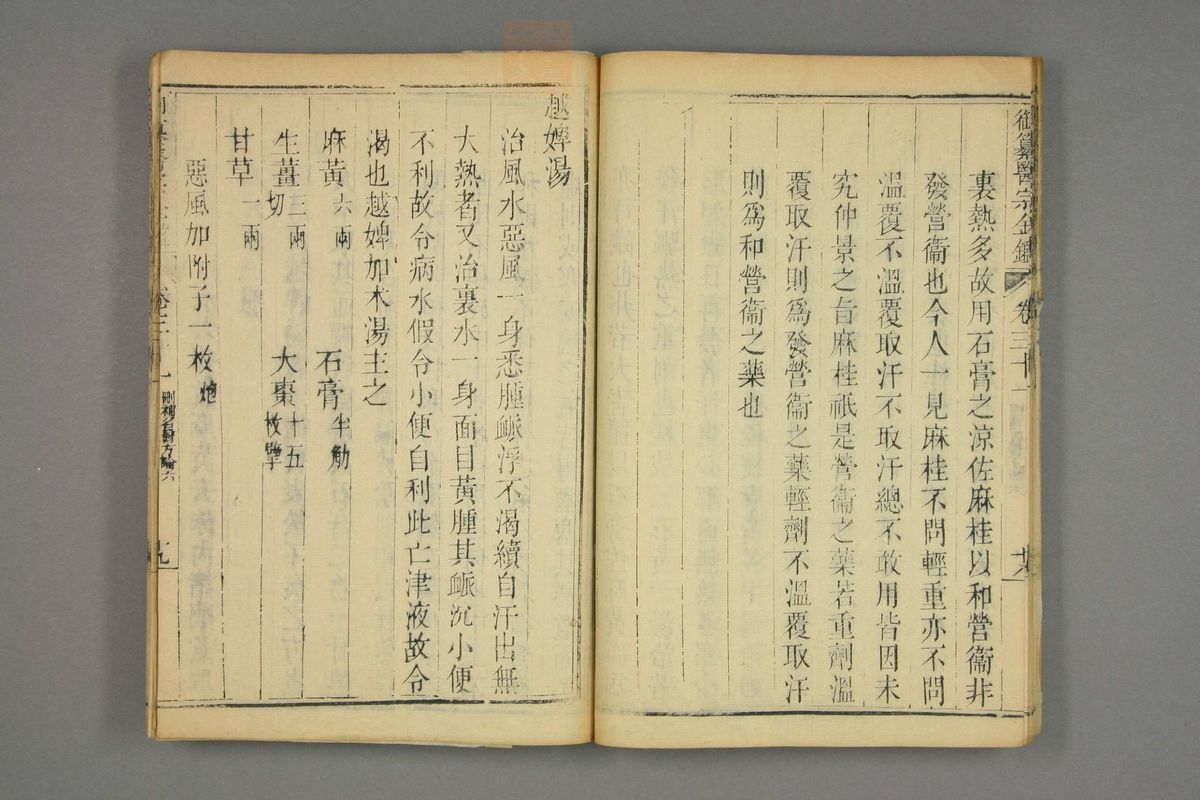 御纂醫宗金鑑
卷三十一
裏熱多故用石膏之凉佐麻桂以和營衞非
發營衞也今人一見麻桂不問輕重亦不問
溫覆不溫覆取汗不取汗總不敢用皆因未
究仲景之旨麻桂祇是營衞之藥若重劑溫
覆取汗則爲發營衞之藥輕劑不溫覆取汗
則爲和營衞之藥也
越婢湯
治風水惡風一身悉腫脈浮不渴續自汗出無
大熱者又治裏水一身面目黃腫其脈沉小便
不利故令病水假令小便自利此亡津液故令
渴也越婢加术湯主之
麻黃六兩　石膏半觔
生薑三兩切　大棗十五枚擘
甘草一兩
惡風加附子一枚炮
刪補名醫方論六